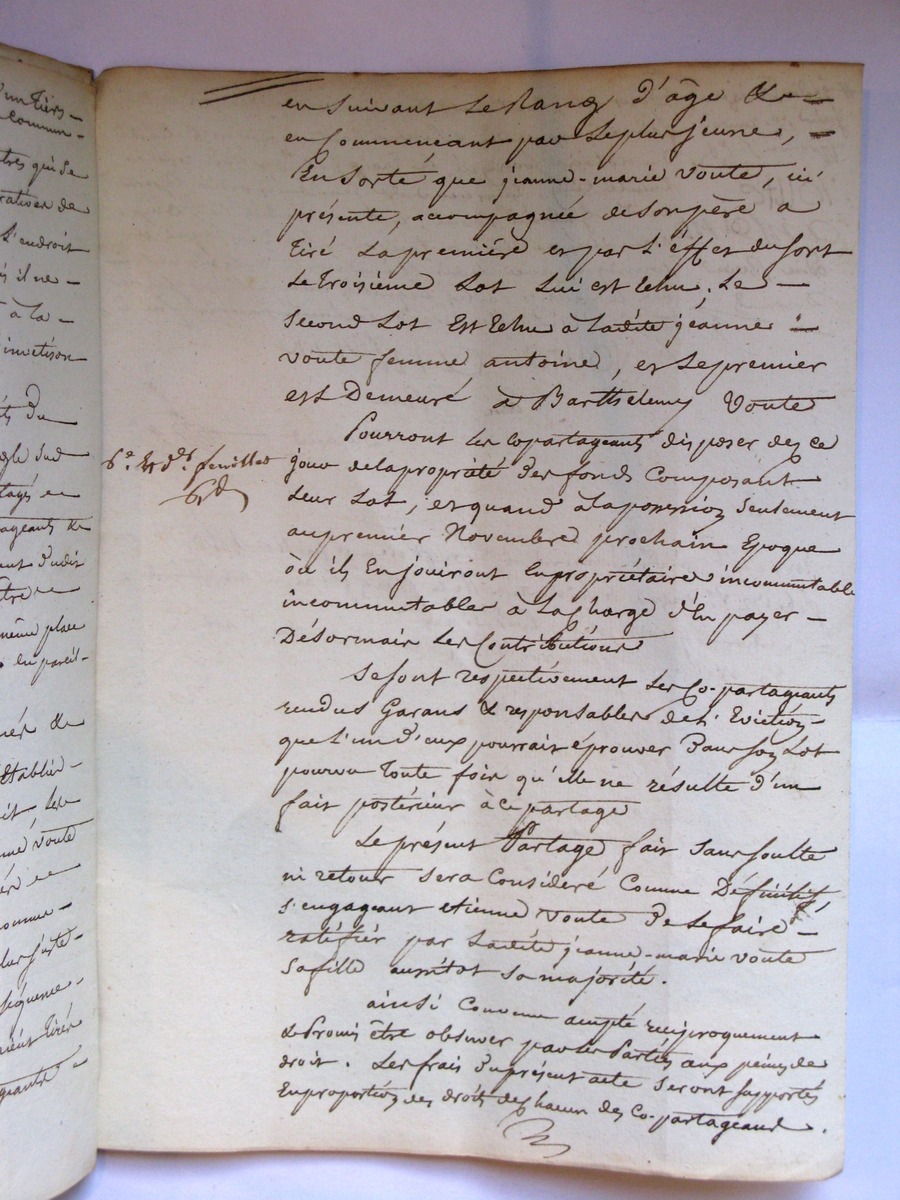 un Tiers
commun-
tres qui se
ratives de
L'endroit
il ne-
à la-
gle sud
même place
en pareil-
voute
plus juste-
séquence-
en suivant Le Rang d'âge &
en Commençant par Le plus jeune,
En sorte que jeanne-marie voute, ici
présente, accompagnée de son père a
Tiré La première et par L'éffet du sort
Le Troisième Lot Lui est Echu; Le-
second Lot Est Echu à Ladite jeanne
voute femme antoine, et Le premier
est Demeuré à Barthelemy Voute
Pourront Les copartageants disposer dez ce
6e. & dre. feuillet
jour de la propriété des fonds Composant
Leur Lot, et quand à La possession seulement
au premier Novembre prochain Epoque
où ils En jouiront En propriétaires incommutable
incommutables à La Charge d'En payer-
Désormais Les Contributions
se sont respectivement Les Co-partageants
rendus Garans & responsables de L'Eviction-
que L'un D'eux pourrait éprouver Dans son Lot
pourvu Toute fois qu'elle ne résulte d'un
fait postérieur à ce partage
Le présent Partage fait sans soulte
ni retour sera Consideré Comme Définitif,
s'engageant etienne voute De Le faire-
ratifier par Ladite jeanne-marie voute
sa fille aussitôt sa majorité.
ainsi Convenu accepté reciproquement
& Promis être observer par Les Parties aux peines de
droit. Les frais Du présent acte seront supportés
En proportion des droits de chacun des Co-partageans.